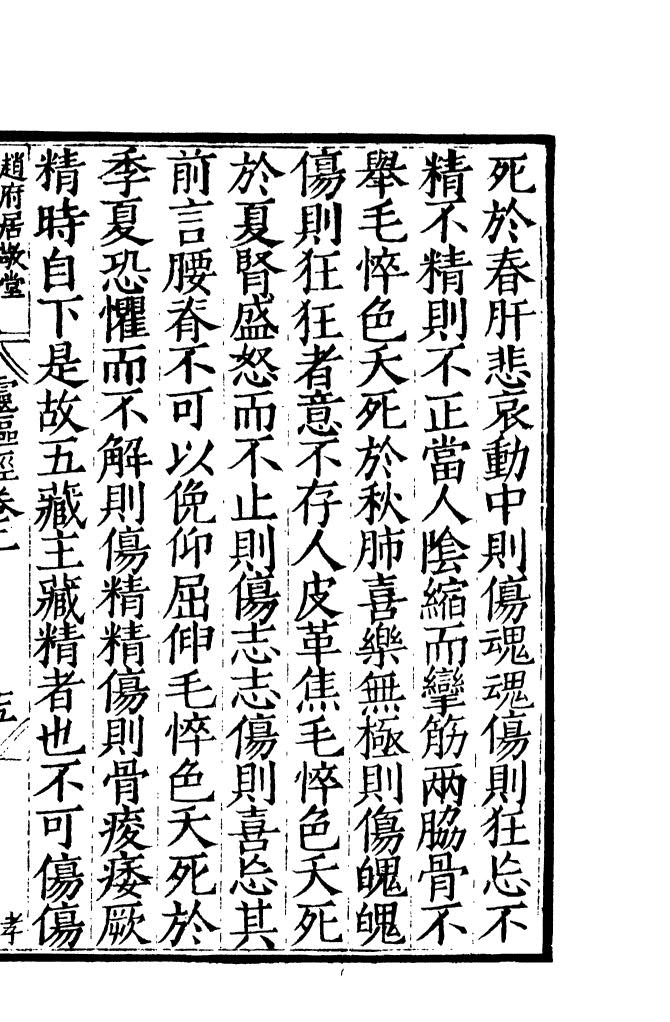 死於春肝悲哀動中則傷魂魂傷則狂忘不
精不精則不正當人陰縮而攣筋兩脇骨不
舉毛悴色夭死於秋肺喜樂無極則傷魄魄
傷則狂狂者意不存人皮革焦毛悴色夭死
於夏腎盛怒而不止則傷志志傷則喜忘其
前言腰脊不可以俛仰屈伸毛悴色夭死於
季夏恐懼而不解則傷精精傷則骨痠痿厥
精時自下是故五藏主藏精者也不可傷傷
趙府居敬堂
靈樞經卷二
五
孝